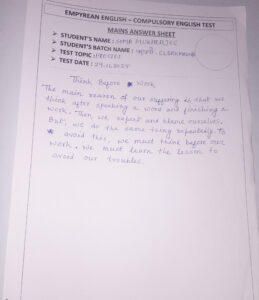 EMPYREAN ENGLISH – COMPULSORY ENGLISH TEST
MAINS ANSWER SHEET
➤ STUDENT'S NAME : SOMA MUKHERJEE
➤ STUDENT'S BATCH NAME : WBPSC - CLERKSHIP
➤ TEST TOPIC : PRECIS
➤ TEST DATE : 29.11.2024
Think Before Work
The main reason of our suffering is that we
think after speaking a word and finishing a
work. Then we repent and blame ourselves.
But, we do the same thing repeatedly. To
avoid this, we must think before our
work. We must learn the lesson to
avoid our troubles.